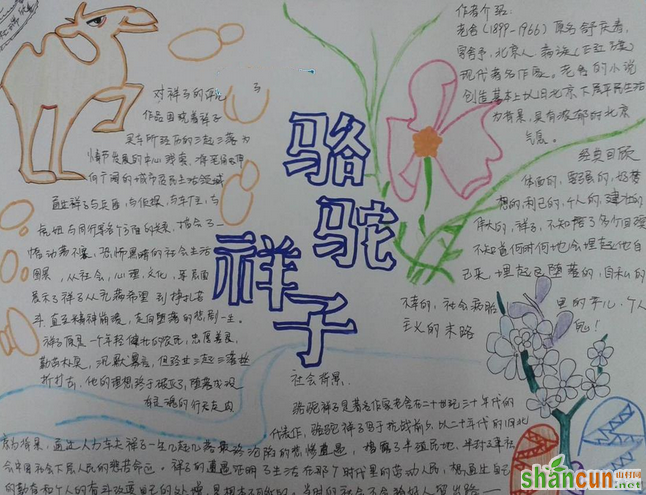 骆驼
祥子
对祥子的评
作品围绕着祥子
买车所经历的三起三落为
情节发展的中心线索
向广阔的城市贫民生活领域
通过祥子与兵匪、与侦探、与车主、与
情动荡不堪,恐怖黑暗的社会生活
图景,从社会,心理,文化,等层面
展示了祥子从充满希望到挣扎奋
斗直至精神崩溃,走向堕落的悲剧一生。
祥子原是一个年轻健壮的农民,忠厚善良,
勤劳朴实,沉默寡言,但经过三起三落挫
折打击,他的理想终于破灭了,堕落成
作者介绍:
老舍(1899-1966)原名舒庆春,
字舍予,北京人
现代著名作家。老舍的小说
创造基本上以旧北京下层平民生活
为背景,具有浓郁的北京
气息。
经典回顾
体面的,要强的,好梦
想的,利己的,个人的,健壮的
伟大的,祥子,不知陪了多个回殡
不知道何时何地会埋起他自
己来,埋起这堕落的,自私的
不幸的,社会病胎里的产儿,个人
主义的末路鬼!
社会背景:
骆驼祥子是著名作家老舍在二十世纪三十年代的
代表作,骆驼祥子写于抗战前夕,以二十年代的旧北
京为背景,通过人力车夫祥子一生几起几落最终沦陷的悲惨遭遇,揭露了半殖民地,半封建社
会中国社会下层人民的悲苦命运。祥子的遭遇证明了生活在那个时代里的劳动人民,想通过自己
的勤劳和个人的奋斗改变自己的处境,是根本不可能的。当时的社会不会给好人留出路
shancun.net
山村网